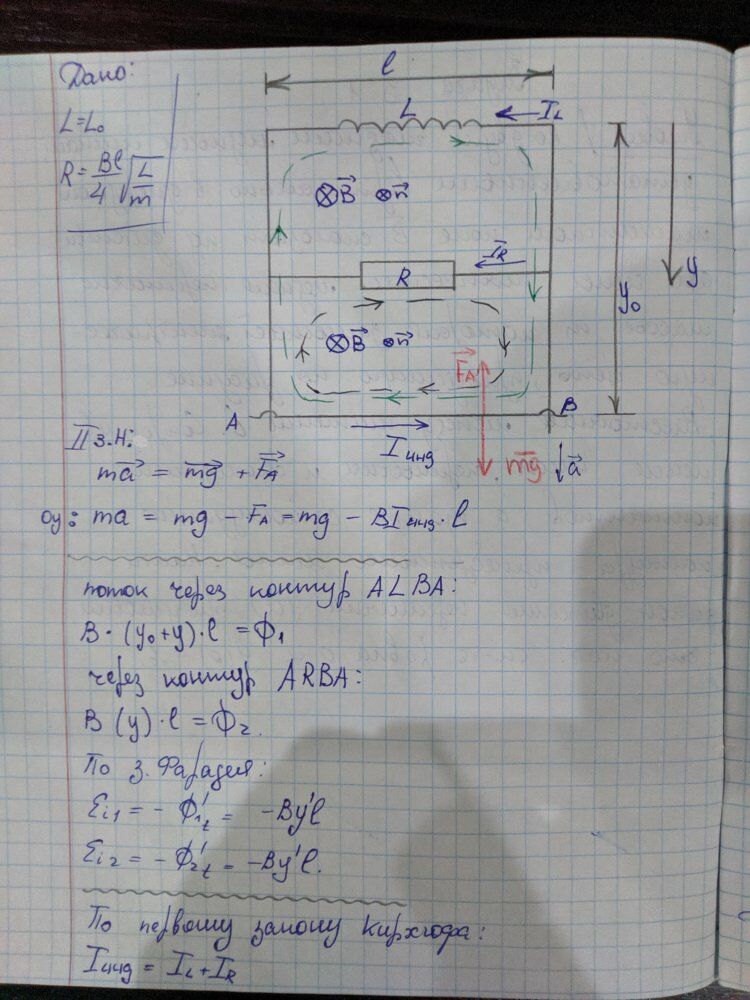 Дано:
L=L₀
R = Bl/4 √(L/m)
l
L
I_L
⊗B⃗ ⊗n⃗
I_R
R
y₀
y
⊗B⃗ ⊗n⃗
F⃗_A
A
B
I инд
mg⃗
↓a⃗
II з.Н:
ma⃗ = mg⃗ + F⃗_A
Oy: ma = mg - F_A = mg - BI инд · l
поток через контур ALBA:
B · (y₀+y) · l = Ф₁
через контур ARBA:
B (y) · l = Ф₂.
По з. Фарадея:
Ɛi₁ = - Ф₁'t = - By'l
Ɛi₂ = - Ф₂'t = - By'l.
По первому закону Кирхгофа:
I инд = I_L + I_R